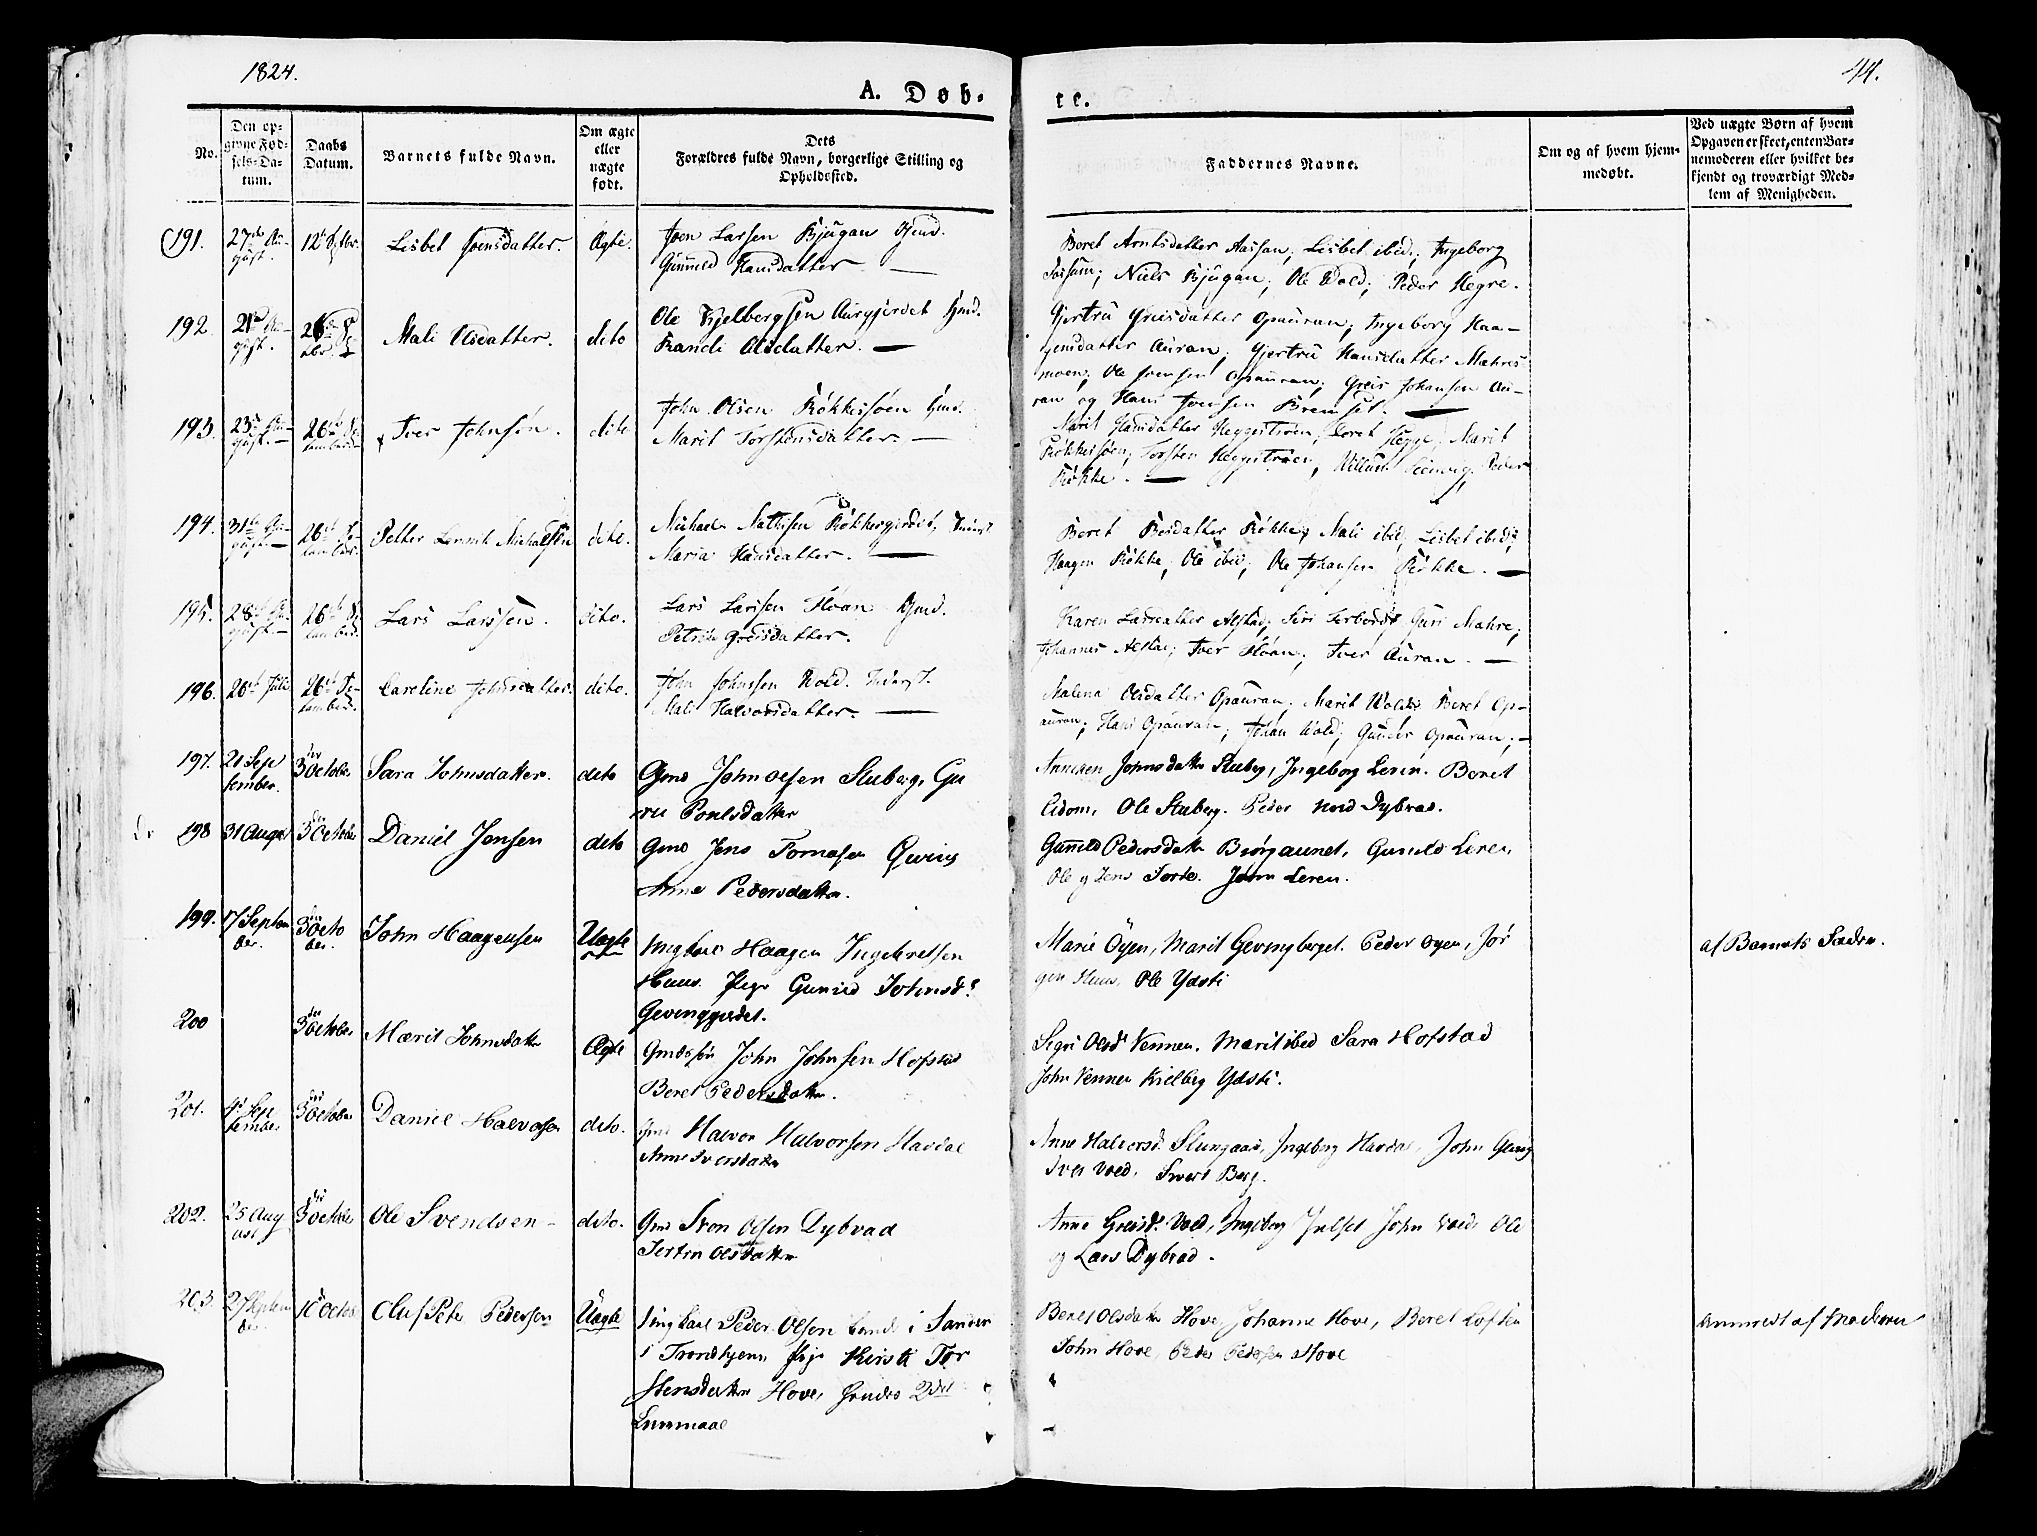 1824.
A. Døb-
te.
44.
No.
Den op-
givne Fød-
sels-Da-
tum.
Daabs
Datum.
Barnets fulde Navn.
Om ægte
eller
uægte
født.
Dets
Forældres fulde Navn, borgerlige Stilling og
Opholdssted.
Faddernes Navne.
Om og af hvem hjem-
medøbt.
Ved uægte Børn af hvem
Opgaven er skeet, enten Bar-
nemoderen eller hvilket be-
kjendt og troværdigt Med-
lem af Menigheden.
191.
27de Au-
gust.
Lisbet Ivensdatter.
Ægte.
Iven Larsen Bjugan Gmd.
Gunnild Hansdatter. —
Beret Arntsdatter Aassan; Lisbet ibid.; Ingeborg
Niels Bjugan; Ole Wold; Peder Hegre.
192.
21de Au-
gust.
Mali Olsdatter.
dito
Ole Kjelbergsen Aurgjerdet Gmd.
Randi Olsdatter. —
Gjertru Greisdatter Opauran; Ingeborg Haa-
gensdatter Auran; Gjertru Hansdatter Mahres-
moen; Ole Ivensen Opauran; Greis Johansen Au-
ran og Hans Iversen Bremset. —
193.
23de Au-
gust. —
26de Se-
tember.
Iver Johnsøn.
dito
John Olsen Røkkesøen Gmd.
Marit Torstensdatter. —
Marit Hansdatter Heggestrøen; Beret Hegge; Marit
Røkkesøen; Torsten Heggstrøen; Peder
Røkke. —
194.
31te Au-
gust. —
26de Se-
tember.
Petter Michaelsen
dito.
Michael Mathisen Røkkegjerdet, Inderst
Maria Hansdatter. —
Beret Røkke; Mali ibid; Lisbet ibid;
Haagen Røkke; Ole ibid; Ole Johansen Røkke. —
195.
28de Au-
gust. —
26de Se-
tember.
Lars Larssen.
dito.
Lars Larssen Hoan Gmd.
Greisdatter.
Karen Larsdatter Alstad; Siri Guri Mahre;
Johannes Alstad; Iver Hoan; Iver Auran. —
196.
26de Juli
26de Se-
tember.
Careline Johnsdatter.
dito.
John Johnssen Wold. Inderst.
Mali Halvorsdatter. —
Malena Olsdatter Opauran; Marit Wold; Beret Op-
auran; Hans Opauran; Johan Wold; Gunder Opauran; —
197.
21 Sep
tember.
3die October
Sara Johnsdatter.
dito
Gmd John Olsen Stuberg, Gu
ru Poulsdatter
Anneken Johnsdatr Stuberg, Ingeborg Leren. Beret
Eidom, Ole Stuberg. Peder Dybvad.
198
31 August
3die October
Daniel Jensen
dito
Gmd Jens Tomasen
Anne Pedersdatter.
Gunnild Pedersdatr Bjørgaunet, Gunild Leren
Ole og Jens Forbo. John Leren.
199.
17 Septem
ber.
3die Octo
ber.
John Haagensen
Uægte
Ungkarl Haagen Ingebretsen
Huus. Pige Gunild Johnsd.
Gevinggjerdet.
Marie Øyen, Marit Gevingberget. Peder Øyen, Jør
gen Huus, Ole Ydsti
af Barnets Fader.
200
3die October
Marit Johnsdatter
Ægte
Gmdssøn John Johnsen Hofstad
Beret Pedersdatter.
Sigri Olsd Venner. Marit ibid Sara Hofstad
John Venner Kielberg Ydsti.
201.
4de Sep
tember
3die October
Daniel Halvorsen
dito.
Gmd Halvor Halvorsen Havdal
Anne Iversdatter
Anne Halvorsd. Ingeborg Havdal, John
Iver Vold, Siverd Berg.
202.
25 Aug
ust
3die October
Ole Svendsen —
dito.
Gmd Svend Olsen Dybvad
Olsdatter
Anne Greisd. Vold, Ingeborg John Vold Ole
og Lars Dybvad.
203.
27 Septem
ber.
10 Octob
Oluf Peter Pedersen
Uægte
Ungkarl Peder Olsen
i Trondhjem Pige Kirsti Tor
stensdatter Hove, 2det
Leiermaal
Beret Olsdatter Hove, Johanne Hove, Beret Loften
John Hove, Peder Pedersen Hove
Anmeldt af Moderen